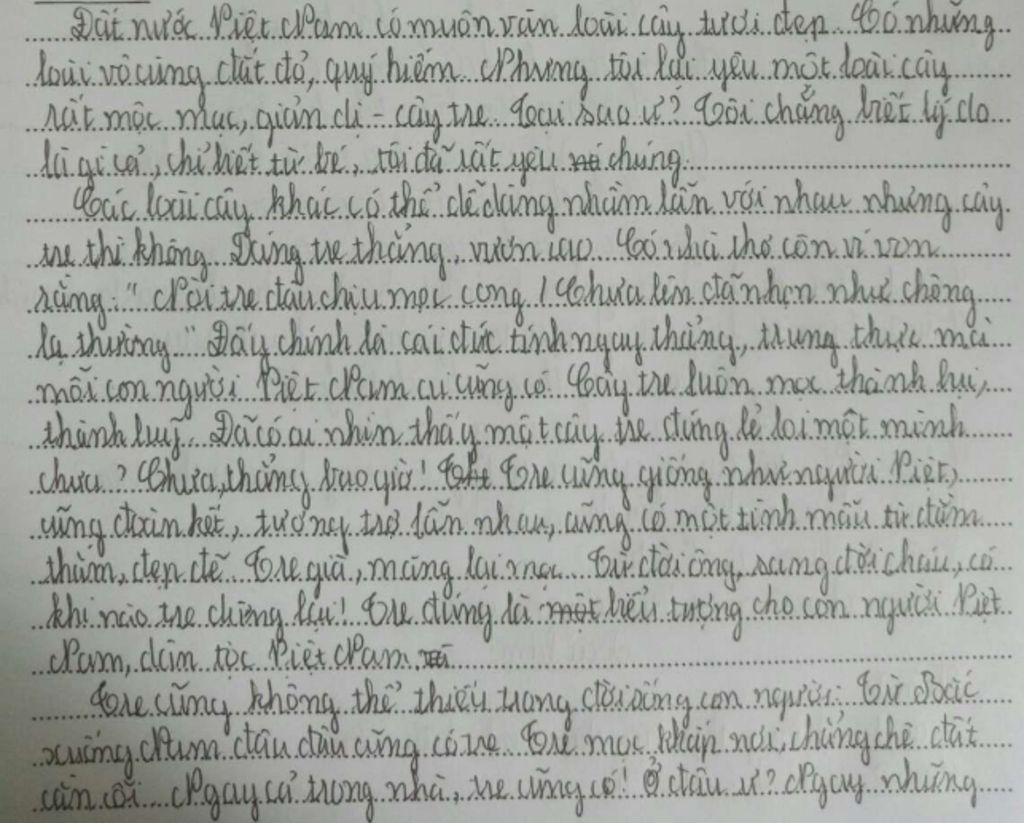 Đất nước Việt Nam có muôn vàn loài cây tươi đẹp. Có những
loài vô cùng đắt đỏ, quý hiếm. Nhưng tôi lại yêu một loài cây
rất mộc mạc, giản dị - cây tre. Tại sao ư? Tôi chẳng biết lý do
là gì cả, chỉ biết từ bé, tôi đã rất yêu chúng.
Các loài cây khác có thể dễ dàng nhầm lẫn với nhau nhưng cây
tre thì không. Dáng tre thẳng, vươn cao. Có nhà thơ còn ví von
rằng: "Nòi tre đâu chịu mọc cong / Chưa lên đã nhọn như chông
lạ thường". Đấy chính là cái đức tính ngay thẳng, trung thực mà
mỗi con người Việt Nam ai cũng có. Cây tre luôn mọc thành bụi,
thành luỹ. Đã có ai nhìn thấy một cây tre đứng lẻ loi một mình
chưa? Chưa, chẳng bao giờ! Tre cũng giống như người Việt,
cũng đoàn kết, tương trợ lẫn nhau, cũng có một tình mẫu tử đằm
thắm, đẹp đẽ. Tre già, măng lại mọc. Từ đời ông, sang đời cháu, có
khi nào tre chừng lại! Tre đúng là biểu tượng cho con người Việt
Nam, dân tộc Việt Nam.
Tre cũng không thể thiếu trong đời sống con người. Từ Bắc
xuống Nam đâu đâu cũng có tre. Tre mọc khắp nơi, chẳng chê đất
cằn cỗi. Ngay cả trong nhà, tre cũng có! Ở đâu ư? Ngay những